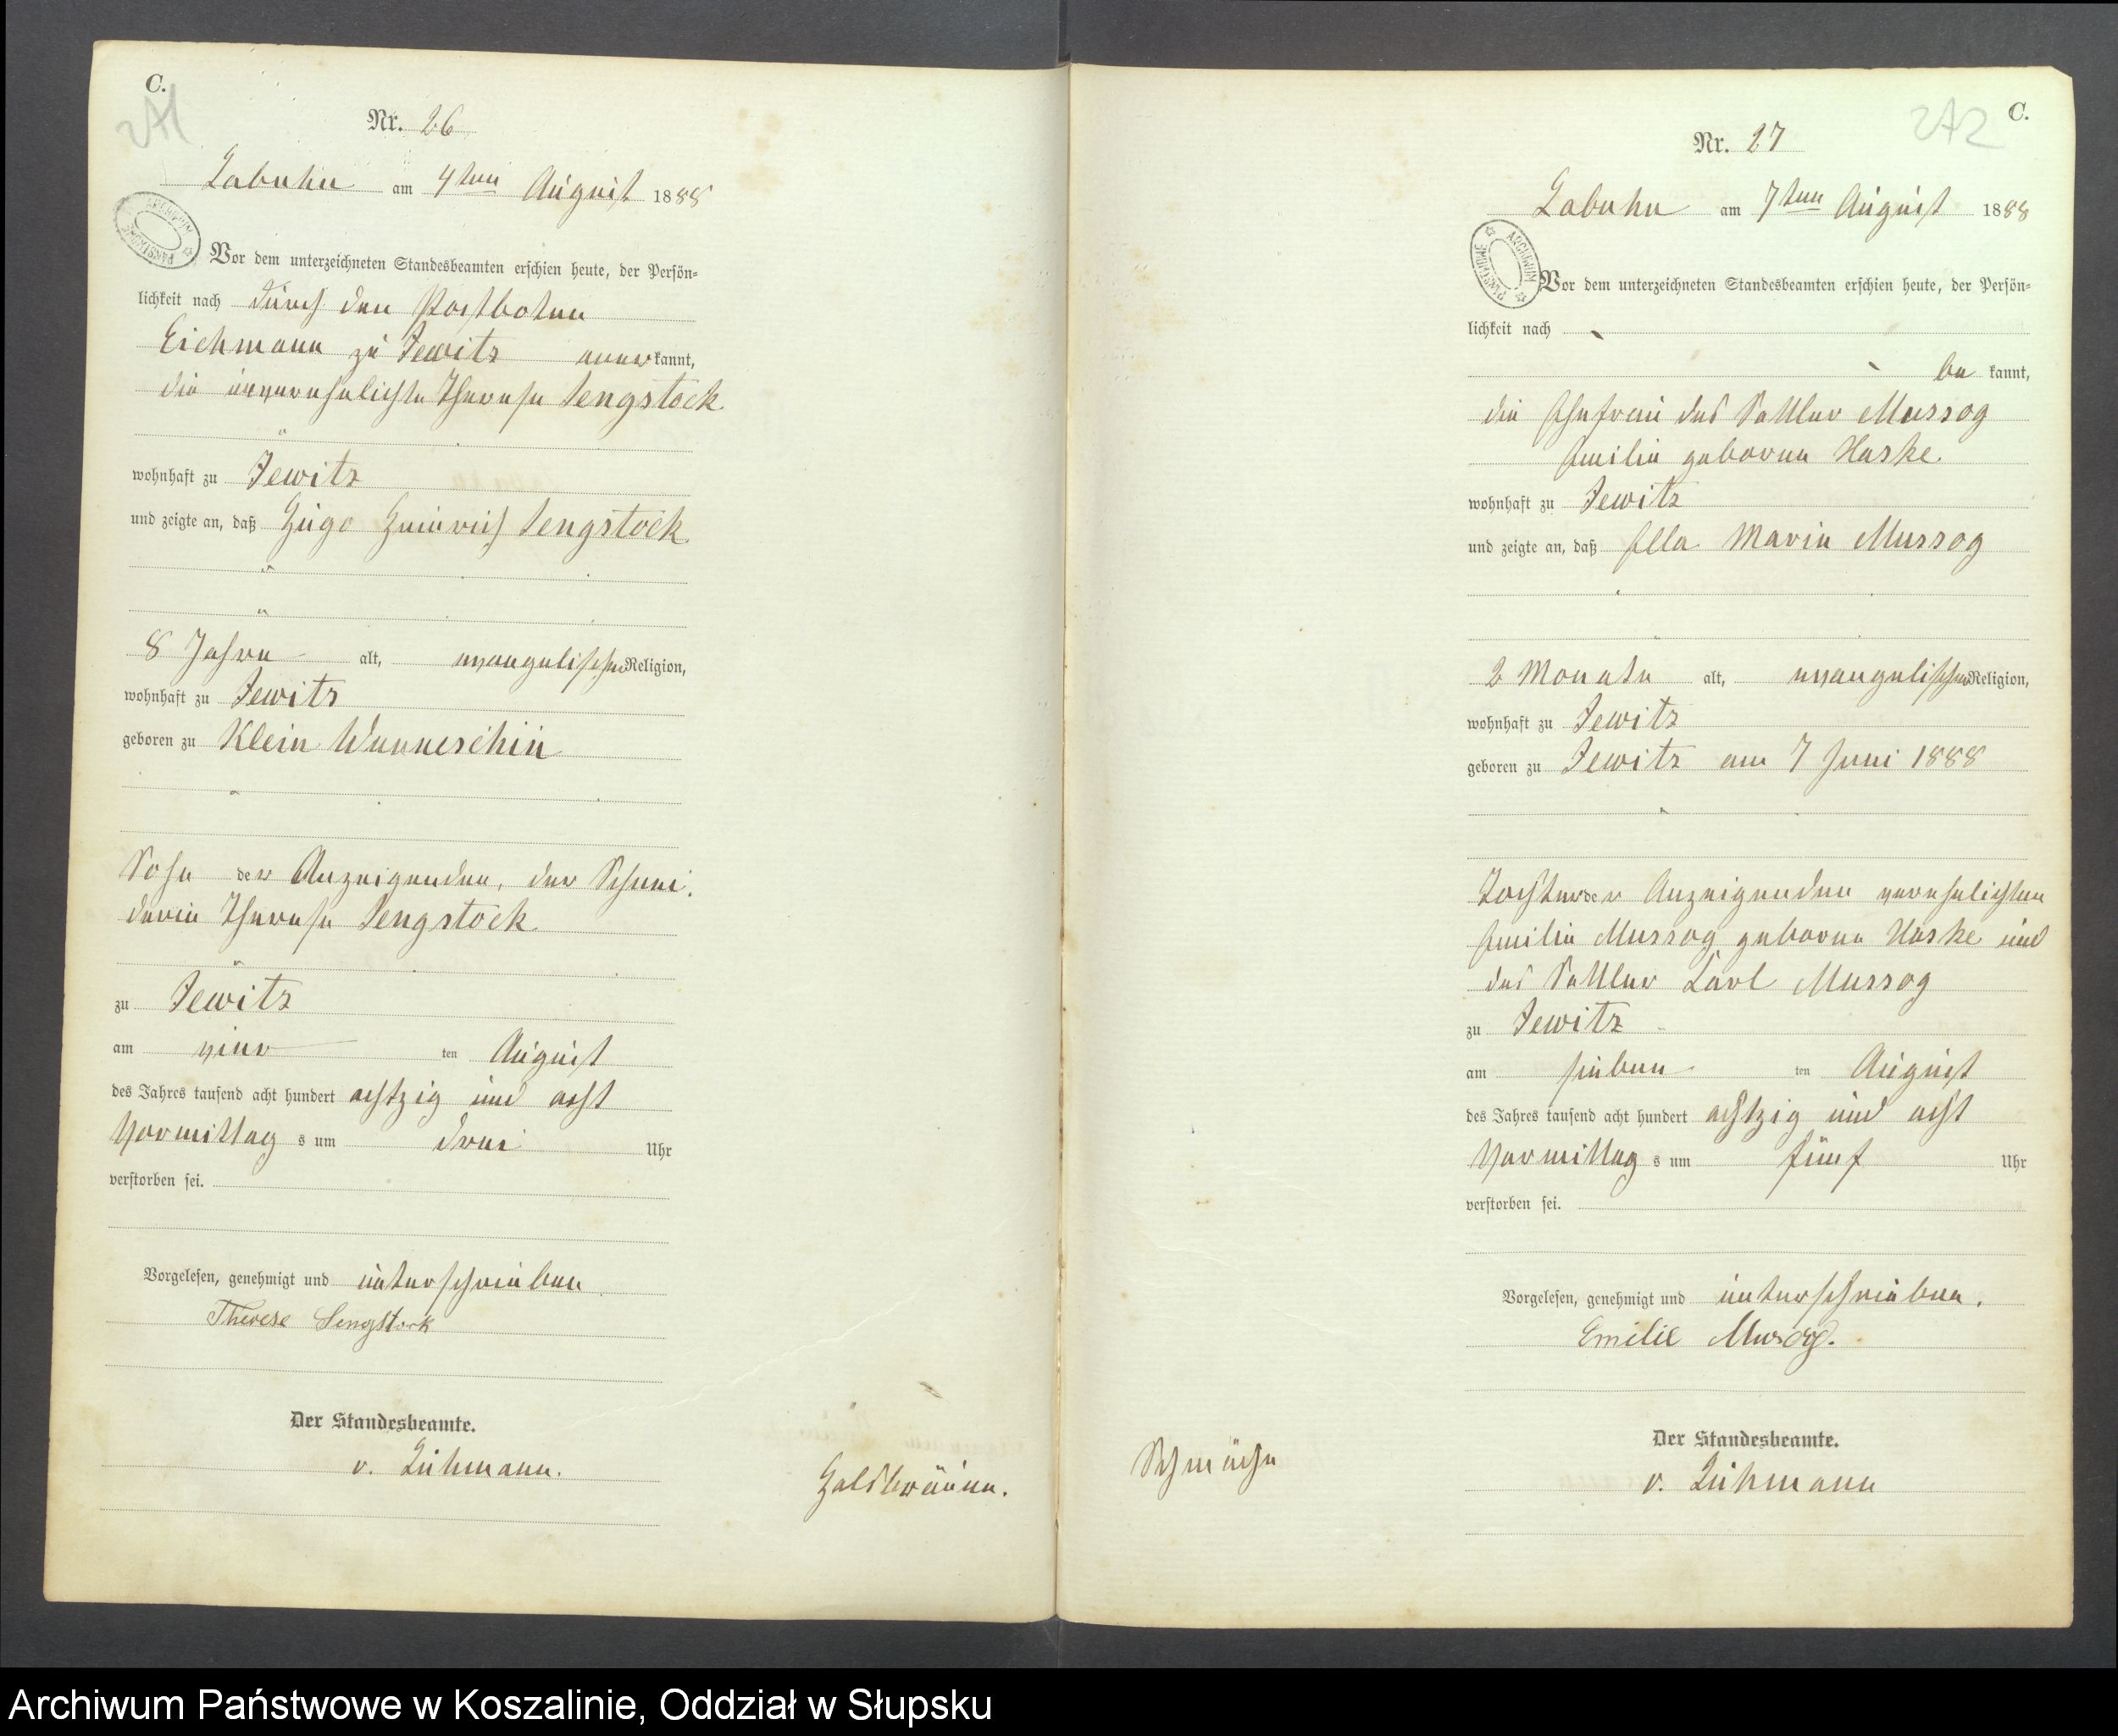 C.
271
Nr. 26
Labuhn am 4ten August 1888
ARCHIWUM PAŃSTWOWE
Vor dem unterzeichneten Standesbeamten erschien heute, der Persön-
lichkeit nach durch den Postboten
Eichmann zu Jewitz anerkannt,
die unverehelichte Therese Sengstock
wohnhaft zu Jewitz
und zeigte an, daß Hugo Heinrich Sengstock
8 Jahre alt, evangelischer Religion,
wohnhaft zu Jewitz
geboren zu Klein Wunneschin
Sohn der Anzeigenden, der Schnei-
derin Therese Sengstock
zu Jewitz
am vier ten August
des Jahres tausend acht hundert achtzig und acht
Vormittag s um drei Uhr
verstorben sei.
Vorgelesen, genehmigt und unterschrieben
Therese Sengstock
Der Standesbeamte.
v. Lühmann.
Halsbräune.
C.
272
Nr. 27
Labuhn am 7ten August 1888
ARCHIWUM PAŃSTWOWE
Vor dem unterzeichneten Standesbeamten erschien heute, der Persön-
lichkeit nach
be kannt,
die Ehefrau des Sattler Mussog
Emilie geborne Haske
wohnhaft zu Jewitz
und zeigte an, daß Ella Marie Mussog
2 Monate alt, evangelischer Religion,
wohnhaft zu Jewitz
geboren zu Jewitz am 7 Juni 1888
Tochter der Anzeigenden verehelichten
Emilie Mussog geborne Haske und
des Sattler Carl Mussog
zu Jewitz
am sieben ten August
des Jahres tausend acht hundert achtzig und acht
Vormittag s um fünf Uhr
verstorben sei.
Vorgelesen, genehmigt und unterschrieben.
Emilie Mussog.
Der Standesbeamte.
v. Lühmann
Schwäche
Archiwum Państwowe w Koszalinie, Oddział w Słupsku